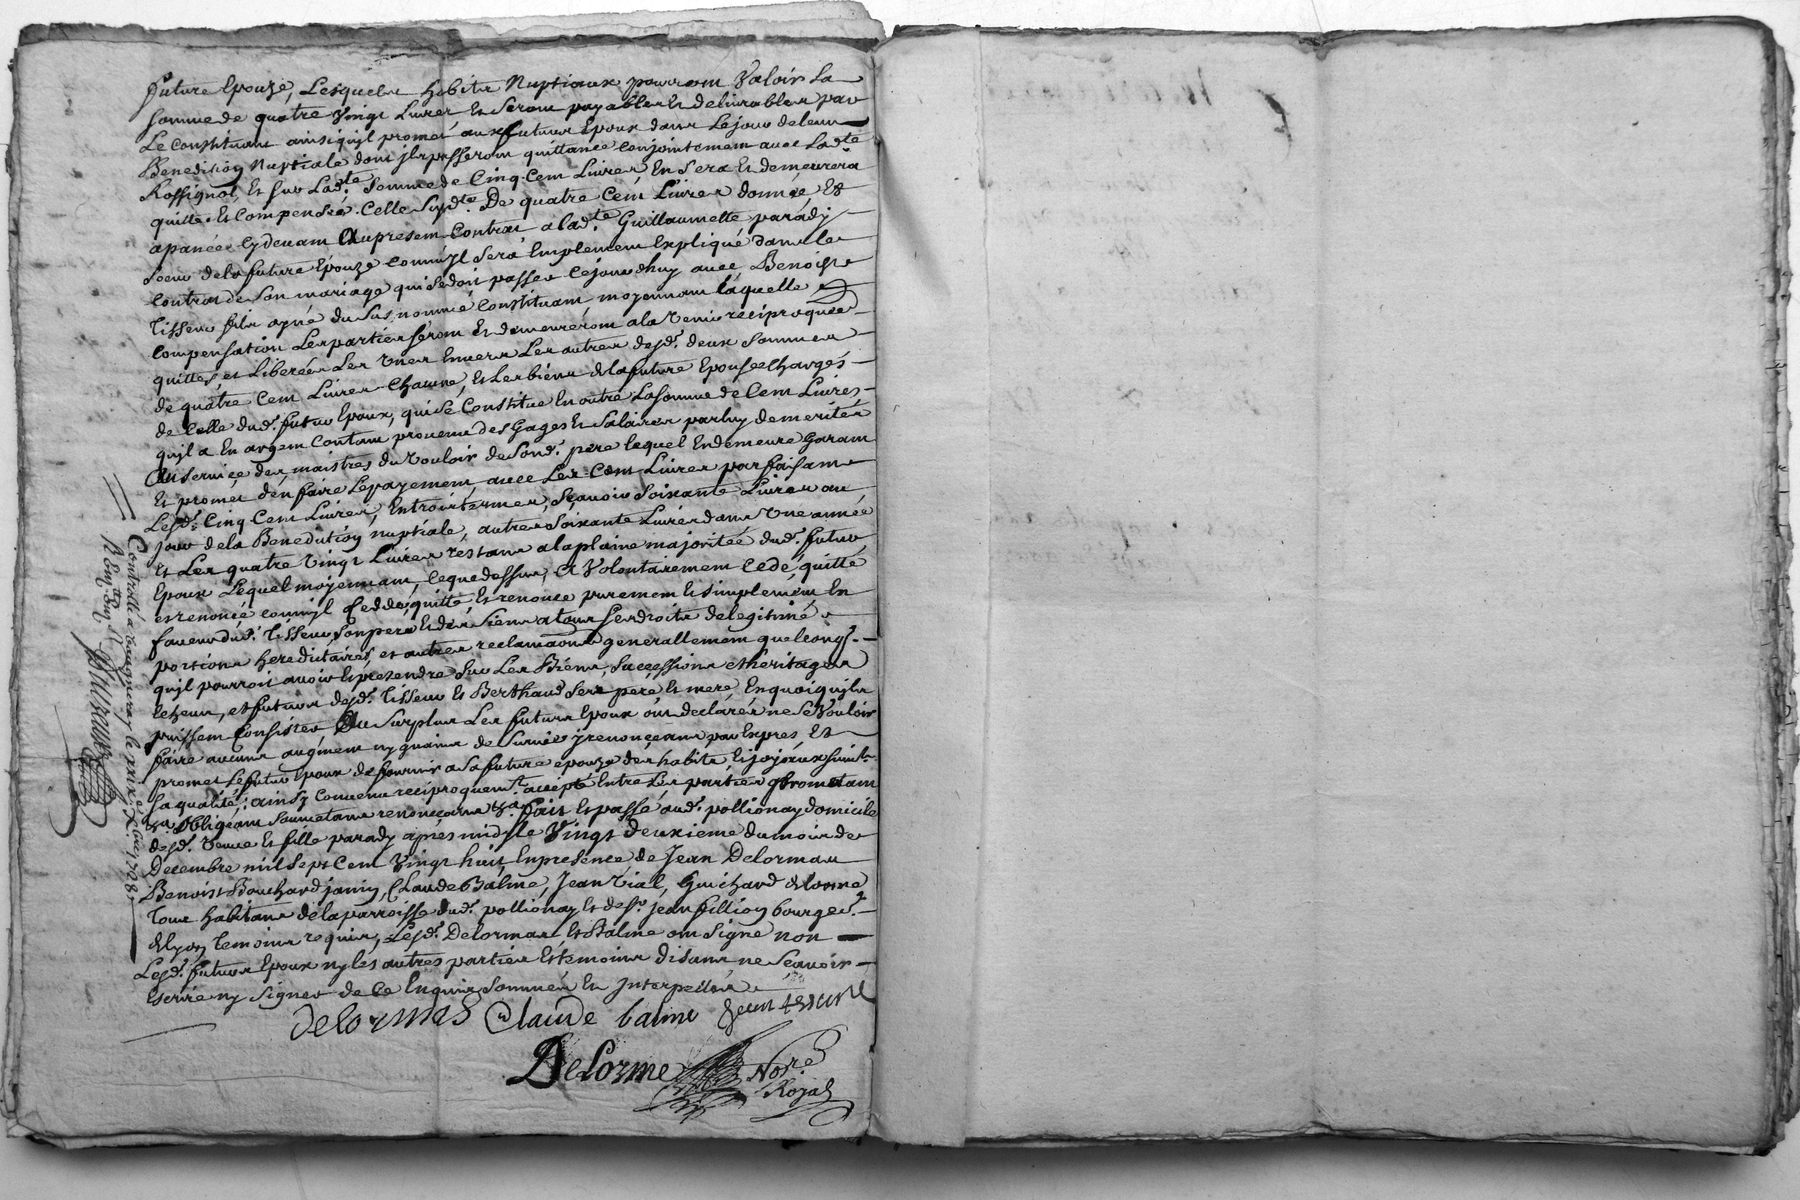 future Epouze, Lesquels habits Nuptiaux pourront Valoir La
somme de quatre Vingt Livres Et seront payables Et delivrables par
Le Constituant ainsi quil promet aux futurs Epoux dans Le jour de leur
Benediction Nuptiale dont ils passeront quittance conjointement avec Lad.te
Rossignol, Et sur Lad.te somme de Cinq Cent Livres En sera Et demeurera
quitte Et Compensée Celle Susd.te De quatre Cent Livres donnée Et
apanée cy devant Au present Contrat a lad.te Guillaumette parady
soeur de la future Epouze comm'il sera Emplement Expliqué dans le
Contrat de son mariage qui se doit passer ce jourdhuy avec Benoist
Tisseur fils ayné du Susnommé Constituant, moyennant laquelle
Compensation Les parties seront Et demeureront a la Venir reciproquée
quittes et Liberées Les Unes Envers Les autres desd. deux sommes
de quatre Cent Livres Chacune, Et Les biens de la future Epouse Chargés
de Celle dud. futur Epoux, qui se Constitue En outre La somme de Cent Livres,
quil a En argent Contant provenu des Gages Et Salaires par luy demerités
Au service des maistres du Vouloir de Sond. pere lequel En demeure Garant
Et promet d'en faire Le payement avec Les Cent Livres parfaisant
Lesd. Cinq Cent Livres, En trois termes, Sçavoir Soixante Livres au
jour de la Benediction nuptiale, autres Soixante Livres dans Une année
Et Les quatre Vingt Livres restans a la plaine majoritée dud. futur
Epoux Lequel moyennant, ce que dessus, A Volontairement Cedé, quitté
et renoncé comm'il Cedde, quitte, Et renonce purement Et simplement En
faveur dud. Tisseur Son pere Et des Siens a tous Ses droits de legitime
portions hereditaires, et autres reclamaons generallement quelconq.
quil pourroit avoir Et pretendre Sur Les Biens, Successions et heritages
Echeus, et futurs desd. Tisseur Et Berthaud Ses pere Et mere, En quoi quils
puissent Consister Au Surplus Les futurs Epoux ont declarés ne Se Vouloir
faire aucuns augment ny gains de Survie y renonçeans par Expres, Et
promet Le futur Epoux de fournir a Sa future Epouze des habits Et joyeaux suiv.t
Sa qualité; ainsy Convenu reciproquem.t accepté Entre Les parties promettant
&a obligeant soumettans renonceans &a. fait Et passé aud. pollionay domicile
desd. Veuve Et fille parady apres midy le Vingt deuxieme du mois de
Decembre mil Sept Cent Vingt huit, En presence de Jean Delormas
Benoist Bouchard janin, Claude Balme, Jean Vial, Guichard delorme
Tous habitans de la parroisse dud. pollionay Et de S.r jean fillion bourge.s
de lyon temoins requis, Lesd. Delormas Et Balme ont Signé non
Lesd. futurs Epoux ny les autres parties Et temoins disans ne Sçavoir
Escrire ny Signer de Ce Enquis Sommés Et Interpellés
delormas Claude balme
DeLorme No.re Royal
Controllé a Vaugneray le Xbre 1728